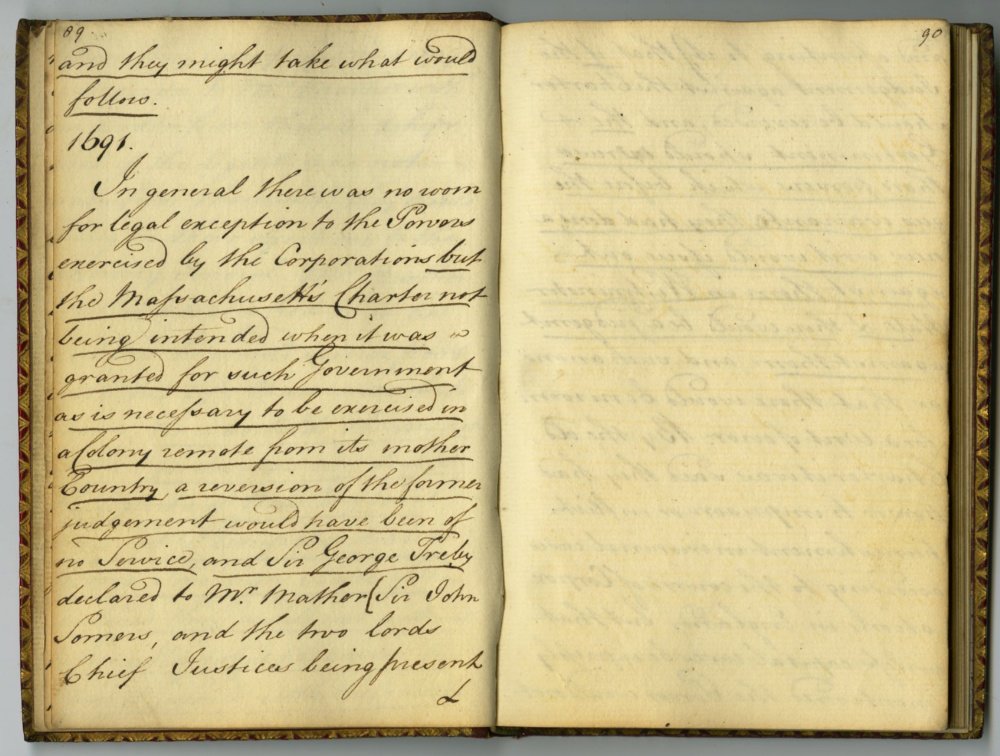 89
and they might take what would
follow.
1691.
In general there was no room
for legal exception to the Powers
exercised by the Corporations but
the Massachusett's Charter not
being intended when it was
granted for such Government
as is necessary to be exercised in
a Colony remote from its mother
Country, a reversion of the former
judgement would have been of
no Service, and Sir George Treby
declared to Mr. Mather (Sir John
Somers, and the two lords
Chief Justices being present
&
90